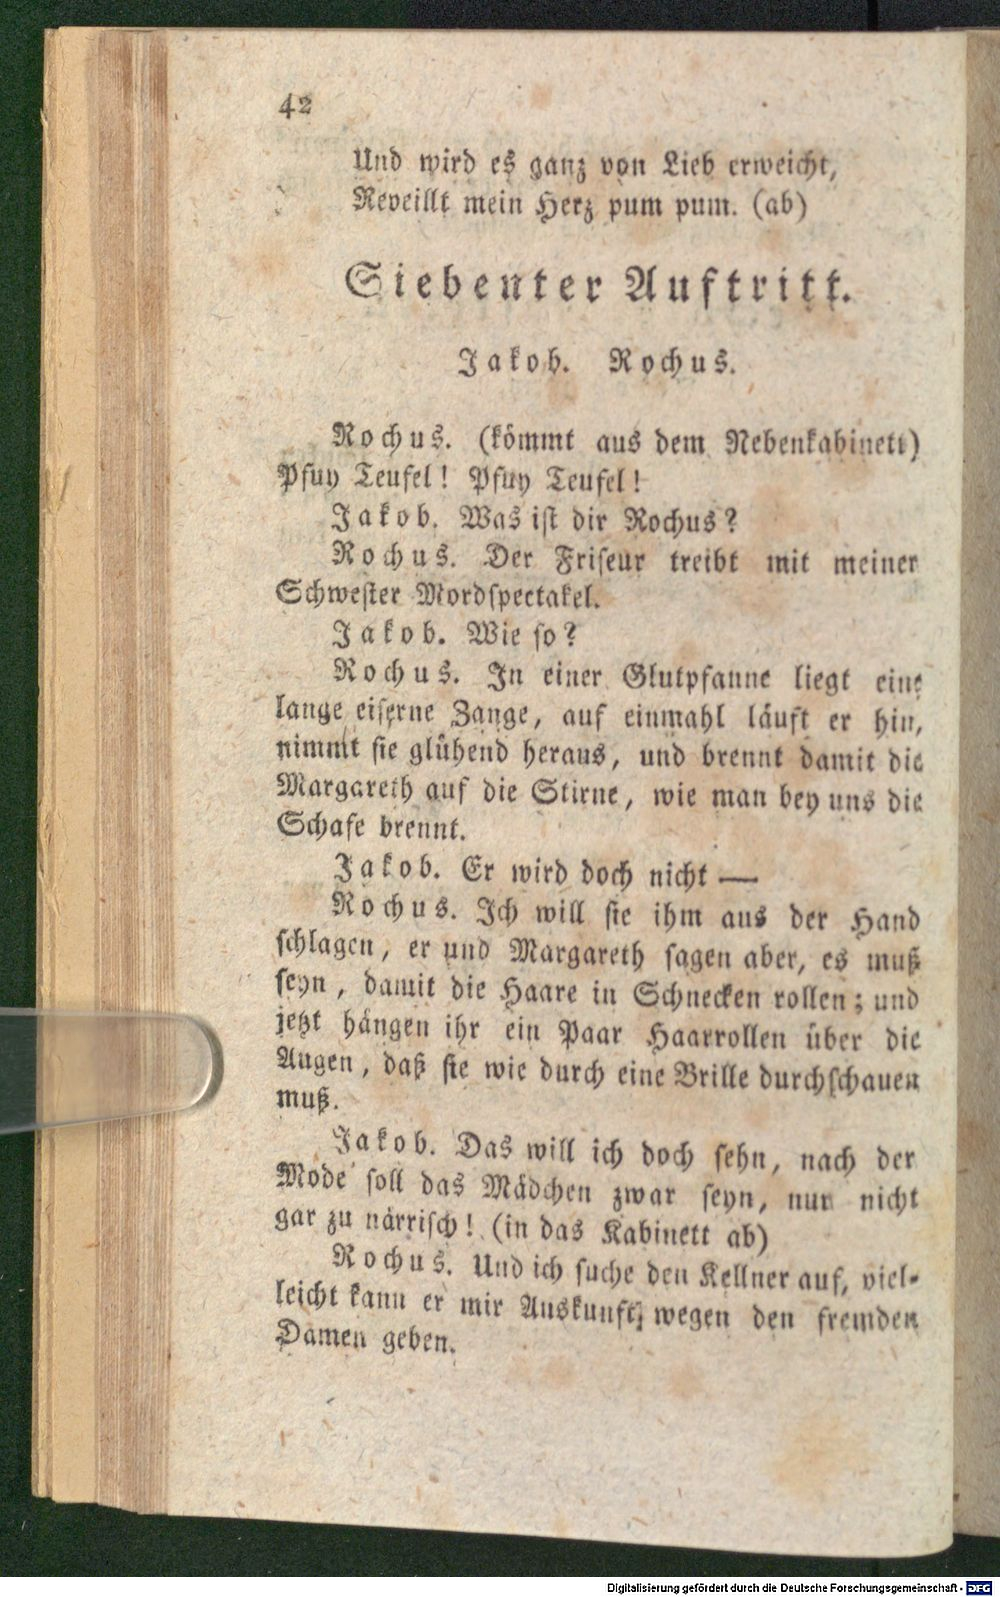 42
Und wird es ganz von Lieb erweicht,
Reveillt mein Herz pum pum. (ab)
Siebenter Auftritt.
Jakob. Rochus.
Rochus. (kömmt aus dem Nebenkabinett)
Pfuy Teufel! Pfuy Teufel!
Jakob. Was ist dir Rochus?
Rochus. Der Friseur treibt mit meiner
Schwester Mordspectakel.
Jakob. Wie so?
Rochus. In einer Glutpfanne liegt eine
lange eiserne Zange, auf einmahl läuft er hin,
nimmt sie glühend heraus, und brennt damit die
Margareth auf die Stirne, wie man bey uns die
Schafe brennt.
Jakob. Er wird doch nicht —
Rochus. Ich will sie ihm aus der Hand
schlagen, er und Margareth sagen aber, es muß
seyn, damit die Haare in Schnecken rollen; und
jetzt hängen ihr ein Paar Haarrollen über die
Augen, daß sie wie durch eine Brille durchschauen
muß.
Jakob. Das will ich doch sehn, nach der
Mode soll das Mädchen zwar seyn, nur nicht
gar zu närrisch! (in das Kabinett ab)
Rochus. Und ich suche den Kellner auf, viel-
leicht kann er mir Auskunft wegen den fremden
Damen geben.
Digitalisierung gefördert durch die Deutsche Forschungsgemeinschaft - DFG